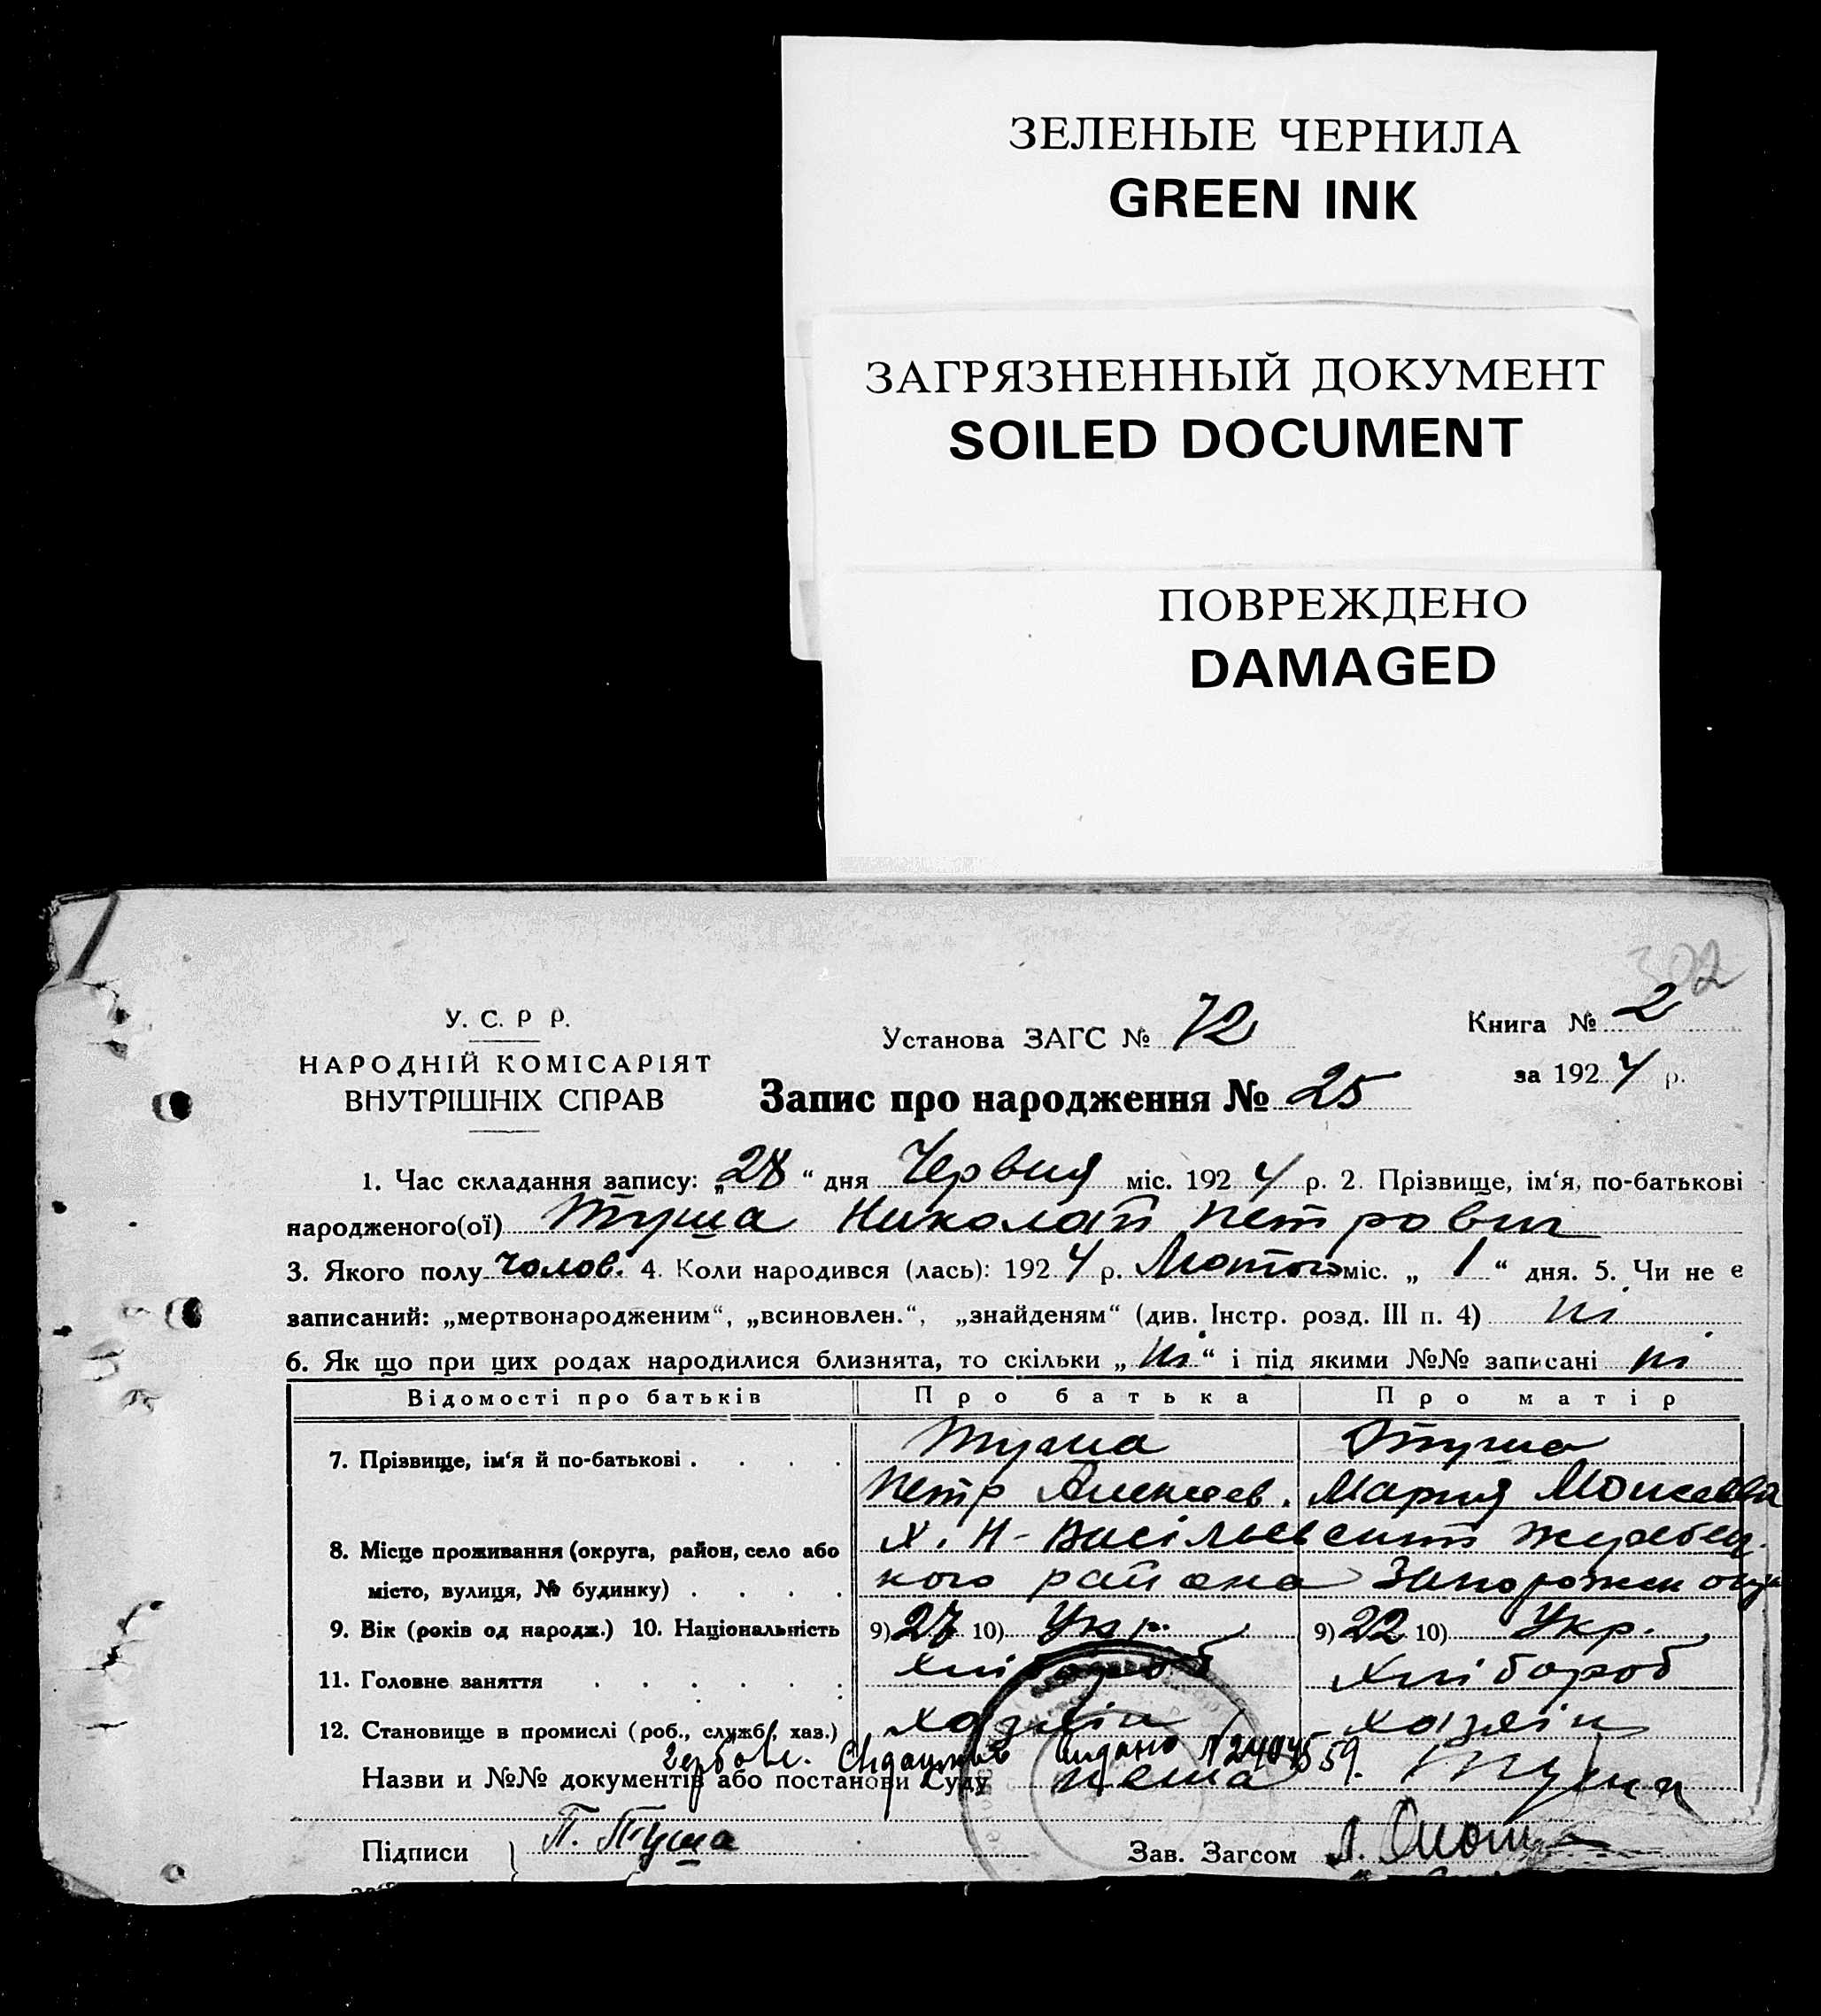 ЗЕЛЕНЫЕ ЧЕРНИЛА
GREEN INK
ЗАГРЯЗНЕННЫЙ ДОКУМЕНТ
SOILED DOCUMENT
ПОВРЕЖДЕНО
DAMAGED
302
У. С. Р Р.
НАРОДНІЙ КОМІСАРІЯТ
ВНУТРІШНІХ СПРАВ
Установа ЗАГС № 72
Книга № 2
за 1924 р.
Запис про народження № 25
1. Час складання запису: „28“ дня Червня міс. 1924 р. 2. Прізвище, ім‘я, по-батькові
народженого(ої) Туша Николай Петрович
3. Якого полу чолов. 4. Коли народився (лась): 1924 р. Лютого міс. „1“ дня. 5. Чи не є
записаний: „мертвонародженим“, „всиновлен.“, „знайденям“ (див. Інстр. розд. III п. 4) ні
6. Як що при цих родах народилися близнята, то скільки „ні“ і під якими №№ записані ні
Відомості про батьків Про батька Про матір
7. Прізвище, ім‘я й по-батькові . . . . Туша Туша
Петр Алексеев. Мария Моисеевна
8. Місце проживання (округа, район, село або Х. Н-Васільевський Жеребец.
місто, вулиця, № будинку) . . . . кого района Запорожск окр
9. Вік (років од народж.) 10. Національність 9) 27 10) Укр. 9) 22 10) Укр.
11. Головне заняття . . . . . . Хлібороб Хлібороб
12. Становище в промислі (роб., службі, хаз.) хазяїн хазяїн
видано № 2404559.
Назви и №№ документів або постанови Суду нема Туша
Підписи } П. Туша Зав. Загсом